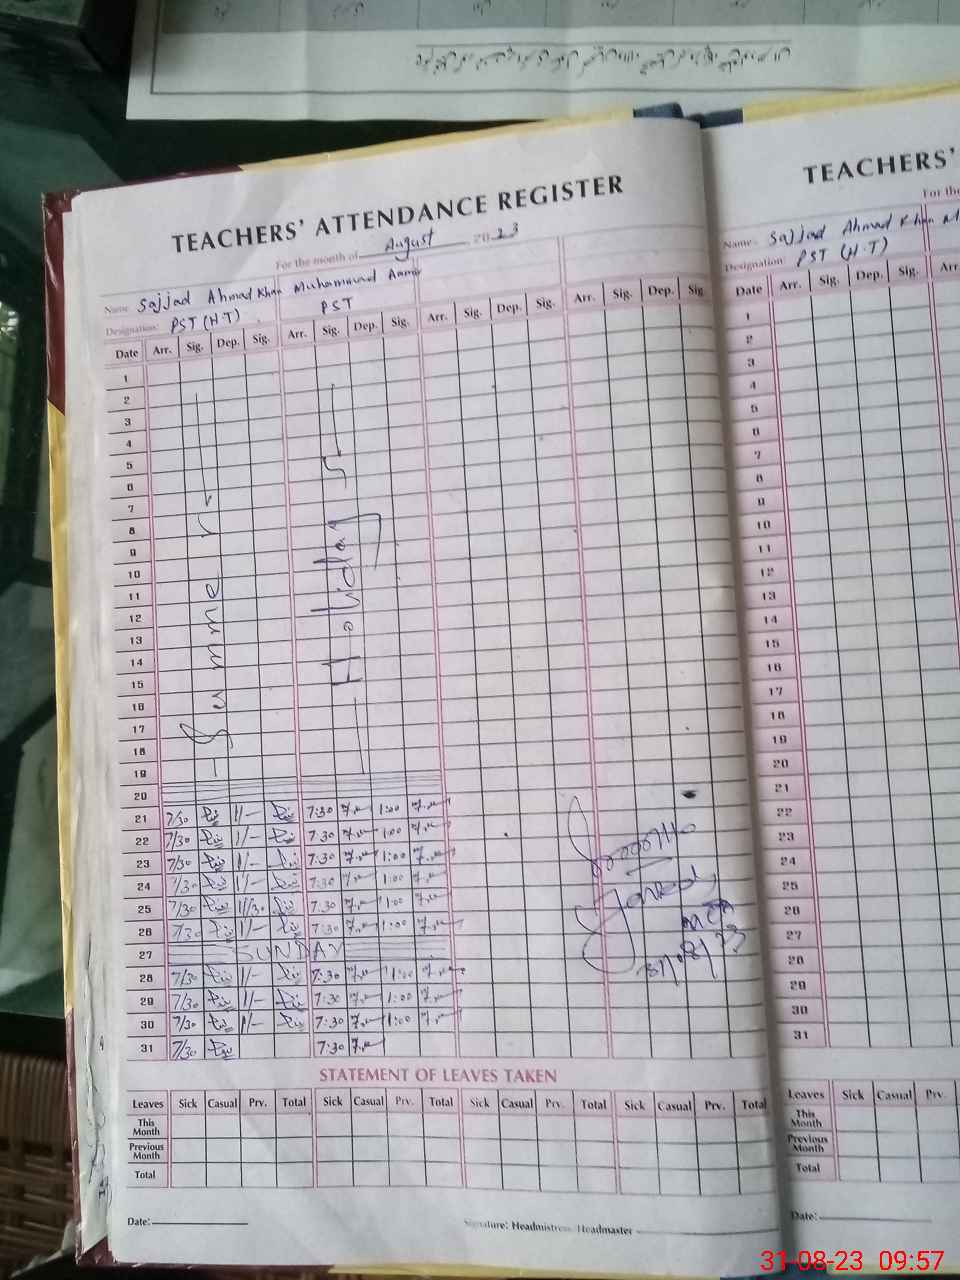 TEACHERS' ATTENDANCE REGISTER
For the month of August 2023
Name: Sajjad Ahmad Khan Muhammad Aamir
Designation: PST (H.T) PST
Date Arr. Sig. Dep. Sig. Arr. Sig. Dep. Sig. Arr. Sig. Dep. Sig. Arr. Sig. Dep. Sig.
1
2
3
4
5
6
7
8
9
10
11
12
13
14
15
16
17
18
19
Summer
Holiday
20
21 7/30 1/- 7:30 1:00
22 7/30 1/- 7:30 1:00
23 7/30 1/- 7:30 1:00
24 7/30 1/- 7:30 1:00
25 7/30 11/30 7:30 1:00
26 7/30 1/- 7:30 1:00
27 SUNDAY
28 7/30 1/- 7:30 1:00
29 7/30 1/- 7:30 1:00
30 7/30 1/- 7:30 1:00
31 7/30 7:30
MEA
31/08/23
STATEMENT OF LEAVES TAKEN
Leaves Sick Casual Prv. Total Sick Casual Prv. Total Sick Casual Prv. Total Sick Casual Prv. Total
This Month
Previous Month
Total
Date:
Signature: Headmistress/Headmaster
TEACHERS'
For the
Name: Sajjad Ahmad Khan M
Designation: PST (H.T)
Date Arr. Sig. Dep. Sig. Arr.
1
2
3
4
5
6
7
8
9
10
11
12
13
14
15
16
17
18
19
20
21
22
23
24
25
26
27
28
29
30
31
Leaves Sick Casual Prv.
This Month
Previous Month
Total
Date:
31-08-23 09:57